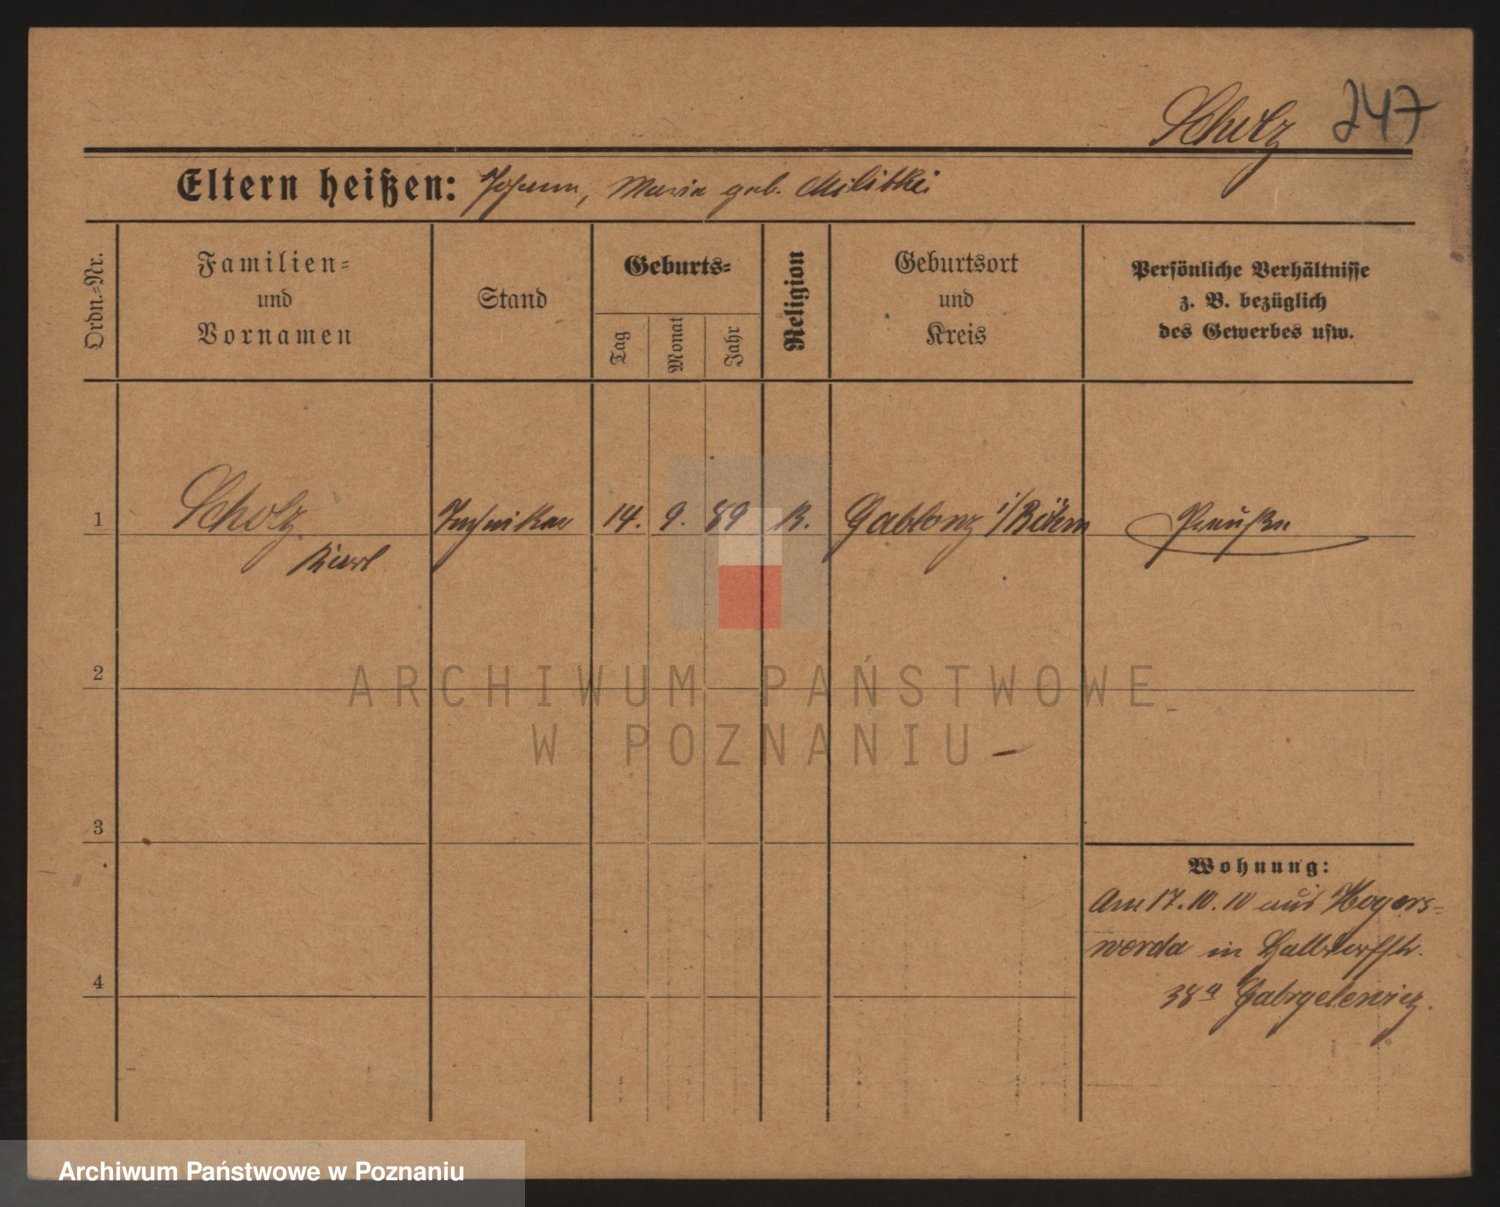 Scholz 247
Eltern heißen: Johann, Maria geb. Militzki
Ordn.-Nr.
Familien-
und
Vornamen
Stand
Geburts-
Tag
Monat
Jahr
Religion
Geburtsort
und
Kreis
Persönliche Verhältnisse
z. B. bezüglich
des Gewerbes usw.
1 Scholz Techniker 14. 9. 89 K. Gablonz i/Böhm Preuße
Karl
2
ARCHIWUM PAŃSTWOWE
W POZNANIU
3
Wohnung:
Am 17.10.10 aus Hoyers-
werda in
4
38a
Archiwum Państwowe w Poznaniu